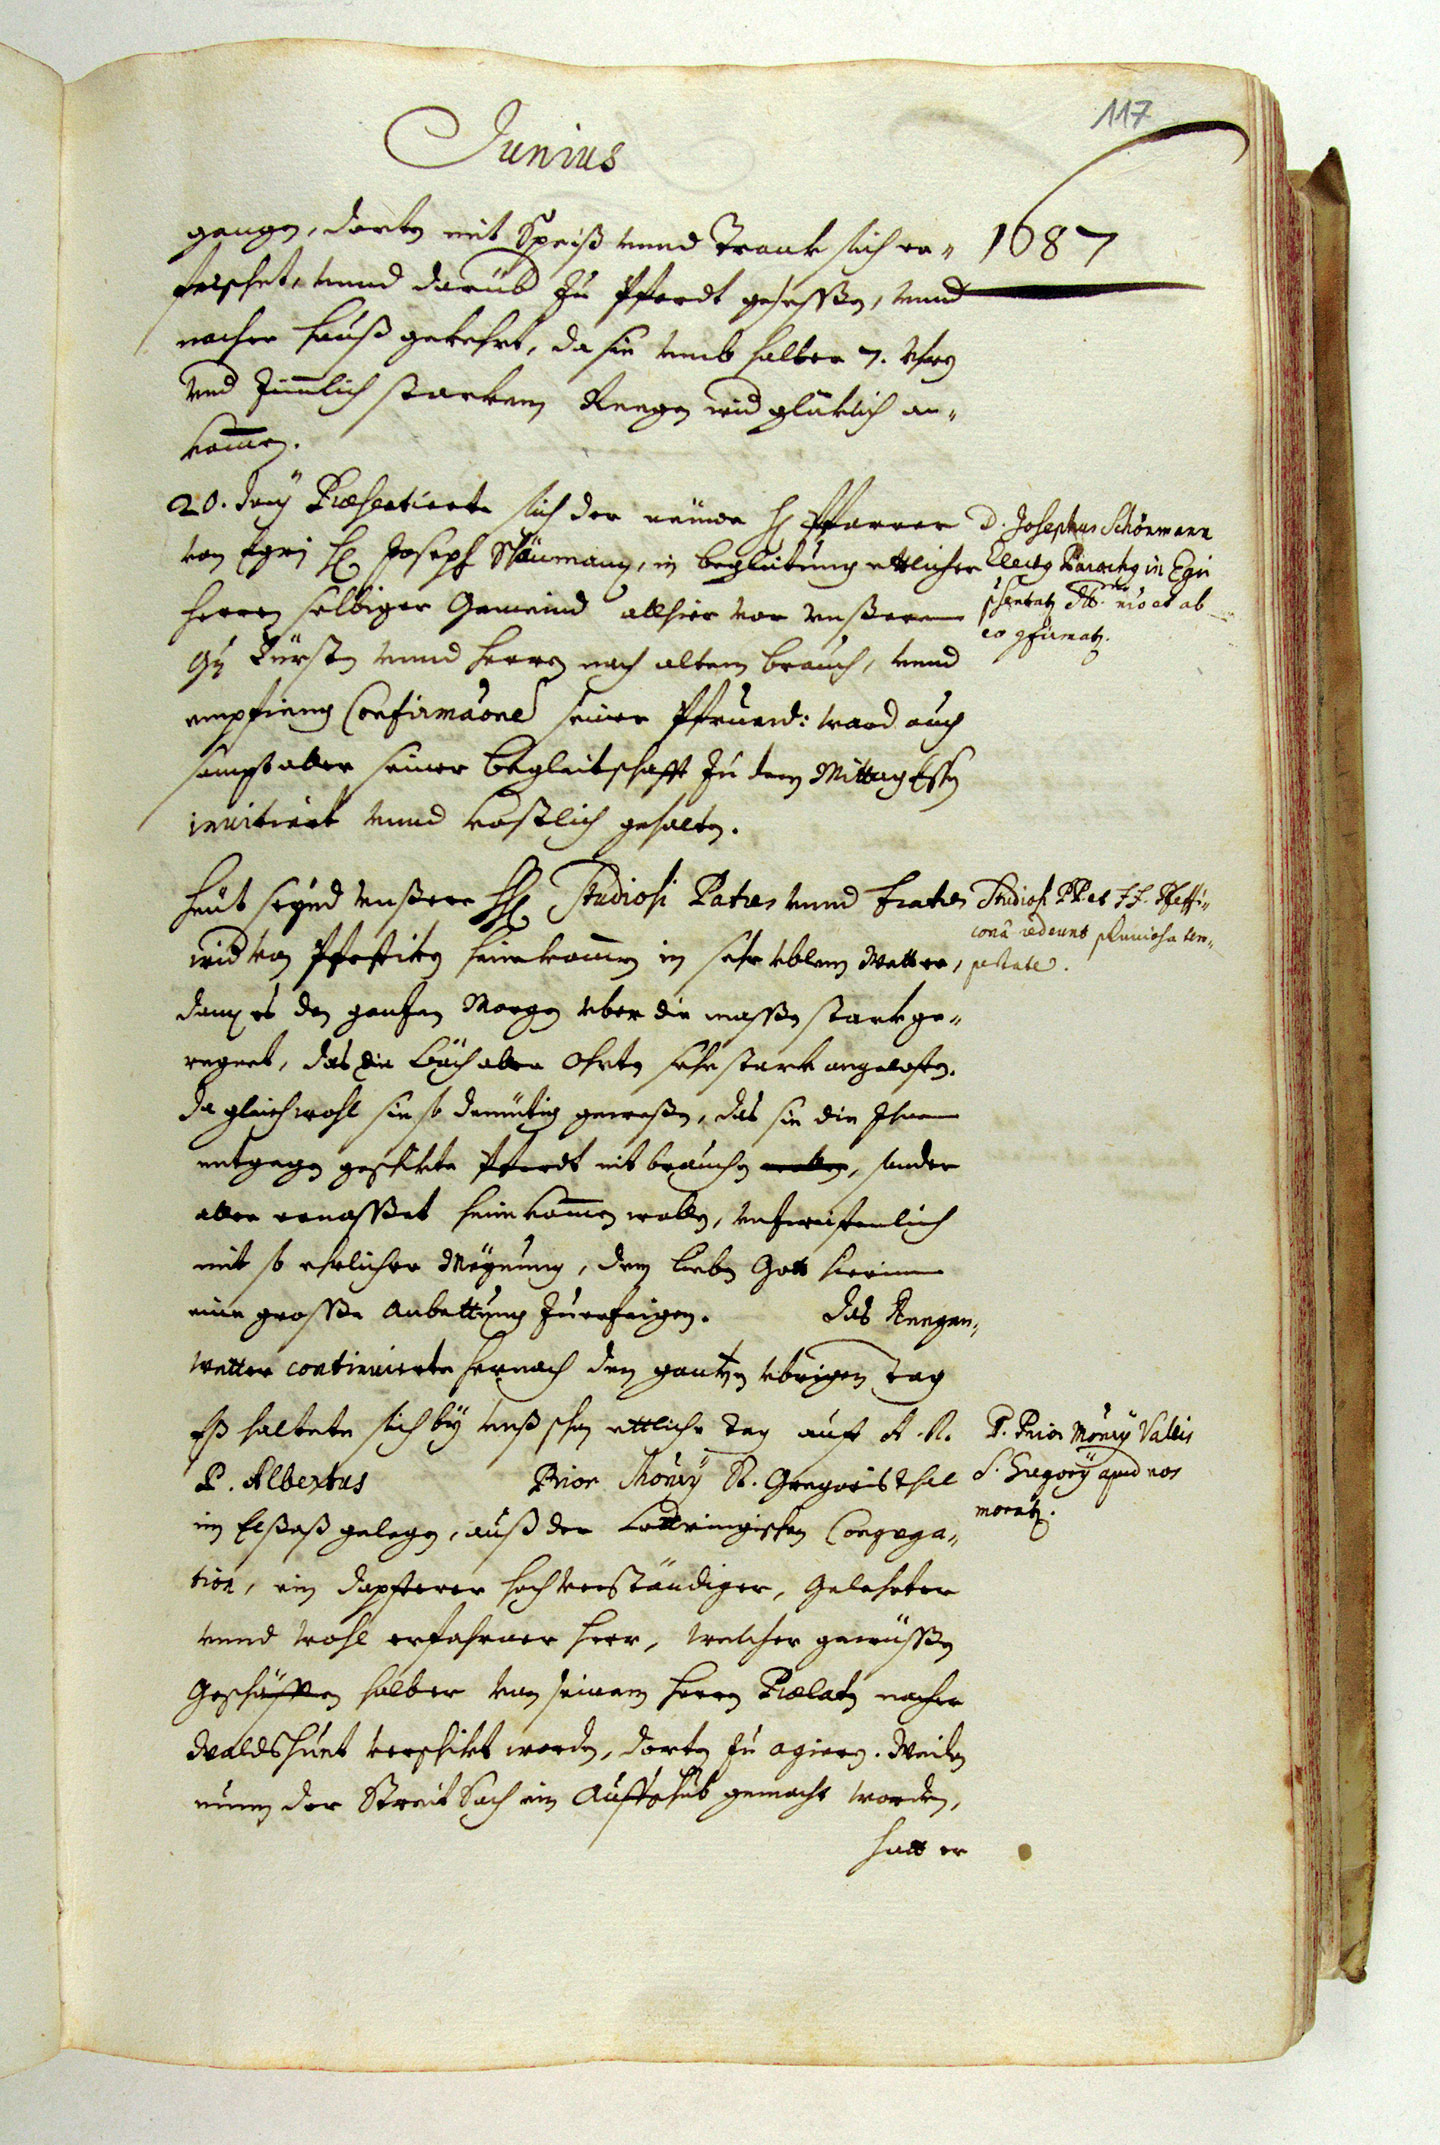 117
Junius
1687
gangen, dorten mit Speiß vnnd Tranck sich er„
frischet, vnnd darüb zu Pferdt gesessen, vnnd
nacher hauß gekehrt, da sie vmb halber 7. Vhren
vnd zimmlich starkem Reegen wid glüklich an„
kommen.
20. Junij Præsentierte sich der neüwe H. Pfarrer
von Egri H. Joseph Schönmann, in begleitung ettlicher
herren selbiger Gemeind allhier vor vnßerem
Gn. Fürsten vnnd herren nach altem brauch, vnnd
empfieng Confirmaõne seiner Pfruend: ward auch
sampt aller seiner begleitschafft zu dem Mittag Essen
invitiert vnnd kostlich gehalten.
D. Josephus Schönmann
Electus Parochus in Egri
præsentatur Rmo nro et ab
eo confirmatur.
Heüt seynd vnßere HH. Studiosi Patres vnnd Fratres
wid von Pfeffikon heimkommen in sehr üblem Wetter,
dann es den gantzen Morgen vber die massen stark ge„
regnet, das die Bäch aller Ohrten sehr stark angeloffen.
Da gleichwohl sie so demütig gewesen, das sie die Ihnen
entgegen geschikte Pferdt nit brauchen wollen, sonder
aller ernasset heimkommen wollen, vnzweifenlich
mit so ehrlicher Meynung, dem lieben Gott hierinn
eine grosse Anbettung zuerzeigen. Das Reegen„
wetter continuierte hernach den gantzen vbrigen Tag
Studiosi PP. et FF. Pfeffi„
cona redeunt pluviosa tem„
pestate.
Eß haltete sich by vnß schon ettliche Tag auff A. R.
P. Albertus Prior Monrij St. Gregoris thal
im Elsaß gelegen, auß der Lottringischen Congrega„
tion, ein dapferer hochverständiger, Gelehrter
vnnd wohl erfahrner herr, welcher gewüssen
Geschäfften halber von seinem herren Prælaten nacher
Waldshuet verschikt worden, dorten zu agieren. Weilen
nunn der Streit Sach ein Auffschub gemacht worden,
hatt er
P. Prior Monrij Vallis
S. Gregorij apud nos
moratur.